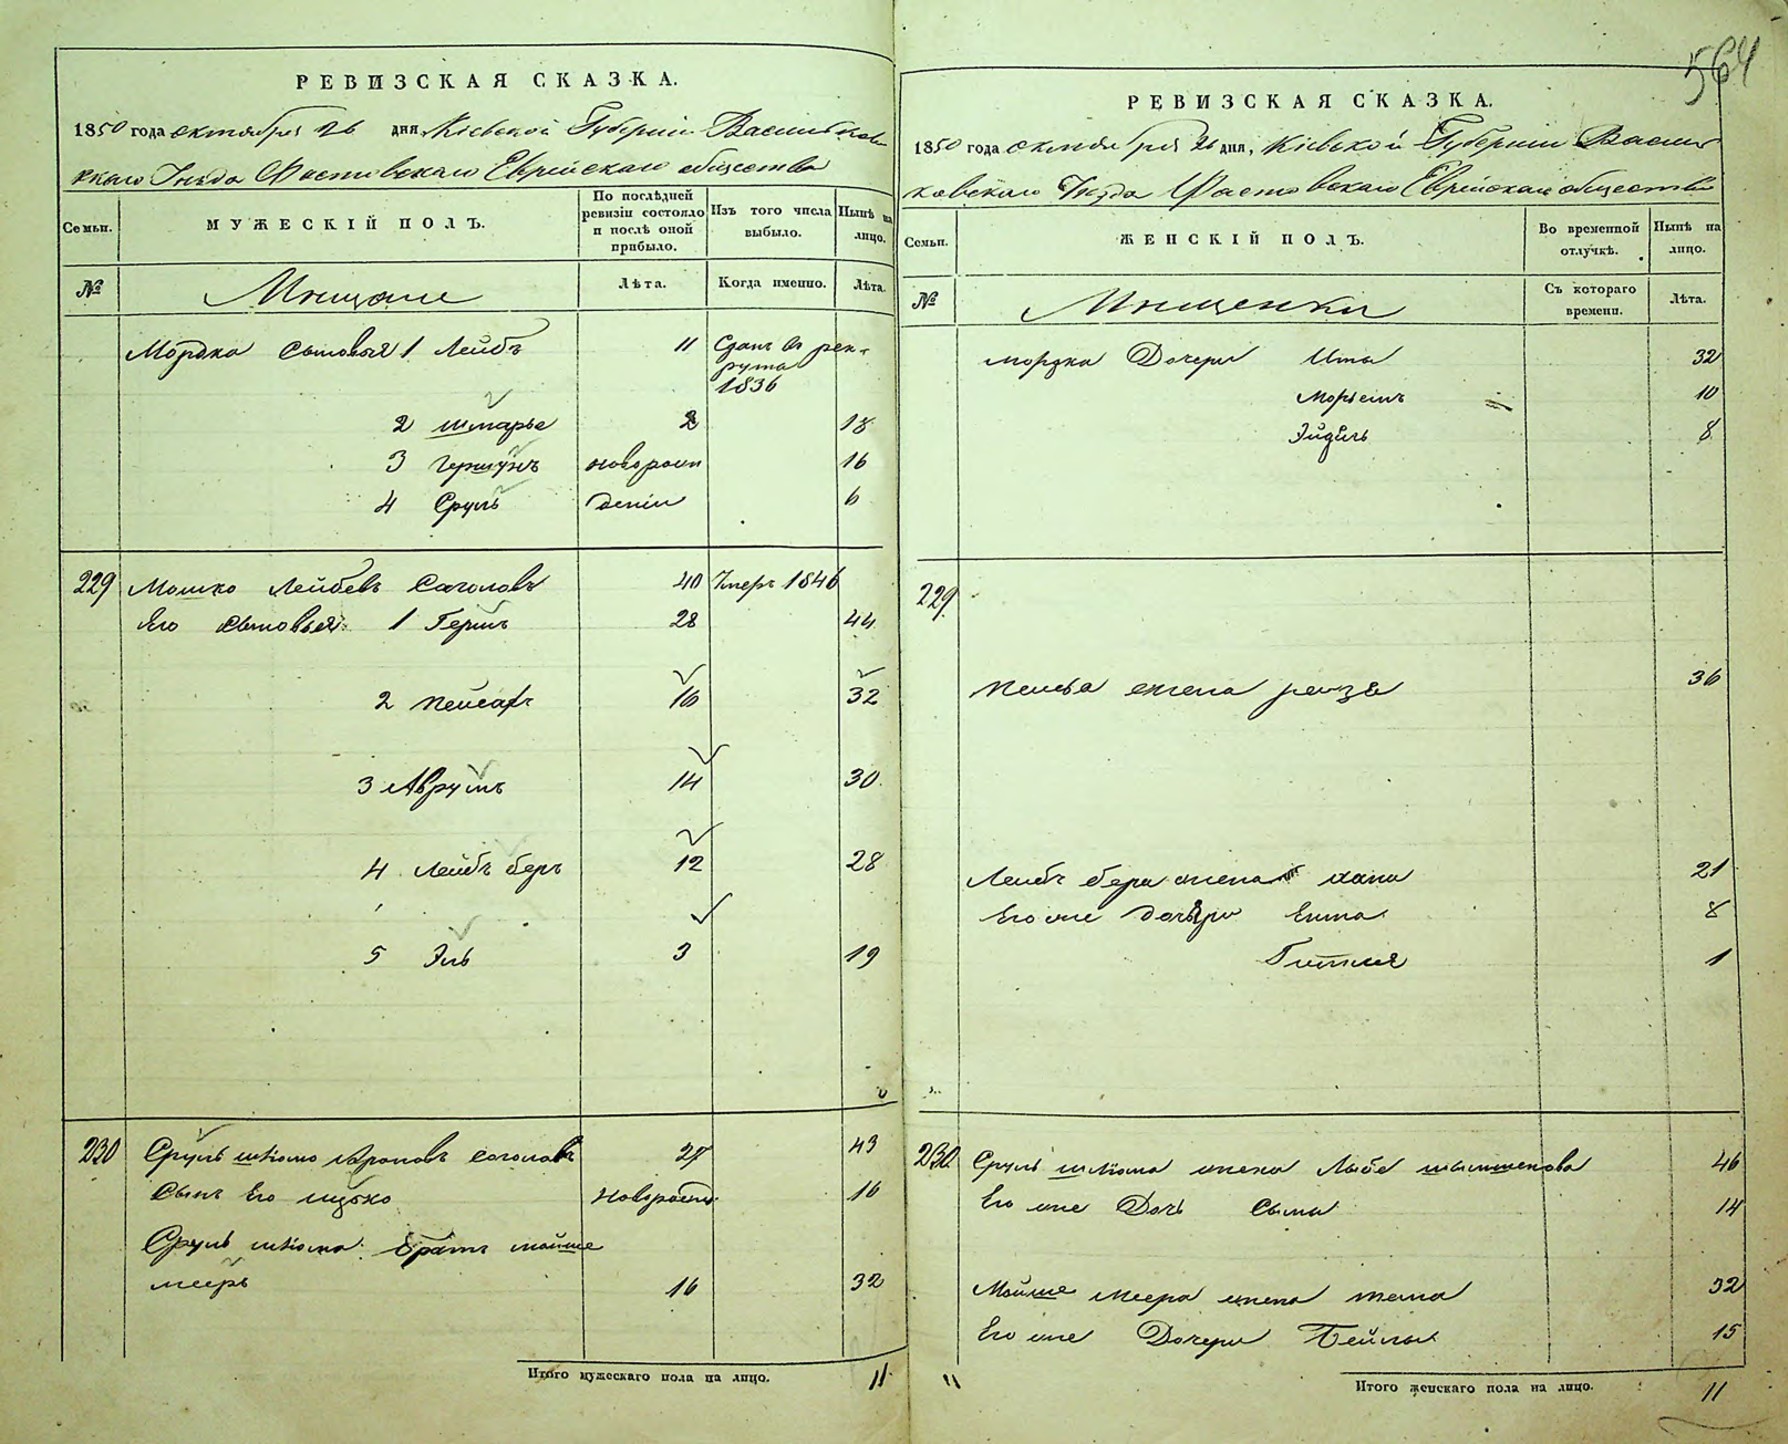 564
РЕВИЗСКАЯ СКАЗКА.
1850 года октября 26 дня, Кіевской Губерніи Васильков
скаго Уѣзда Фастовскаго Еврейскаго общества
Семьи.
МУЖЕСКІЙ ПОЛЪ.
По послѣдней ревизіи состояло и послѣ оной прибыло.
Изъ того числа выбыло.
Нынѣ на лицо.
№
Мещане
Лѣта.
Когда именно.
Лѣта.
Мордка Сыновья 1 Лейбъ 11 Сданъ въ рек-
рута
1836
2 Шмарье 2 18
3 Гершунъ новорож 16
4 Сруль деніи 6
229 Мошко Лейбовъ Соголовъ 40 Умеръ 1846
Его Сыновья: 1 Герш 28 44
2 Пейсахъ 16 32
3 Аврумъ 14 30
4 Лейбъ беръ 12 28
5 Эль 3 19
230 Сруль шліома Ароновъ Соголовъ 27 43
Сынъ Его Ицько новорожд. 16
Сруль шліома братъ мойше
мееръ 16 32
Итого мужескаго пола на лицо. 11
РЕВИЗСКАЯ СКАЗКА.
1850 года октября 26 дня, Кіевской Губерніи Васил
ковскаго Уѣзда Фастовскаго Еврейскаго общества
Семьи.
ЖЕНСКІЙ ПОЛЪ.
Во временной отлучкѣ.
Нынѣ на лицо.
№
Мещанки
Съ котораго времени.
Лѣта.
Мордка Дочери Ита 32
Морьемъ 10
Эйдель 8
229
жена 36
Лейбъ бера жена хана 21
Его же дочери Ента 8
Гитля 1
230 Сруль шліома жена Лыба 46
Его же Дочь Сыма 14
Мойше меера жена 32
Его же Дочери Бейла 15
11
Итого женскаго пола на лицо. 11